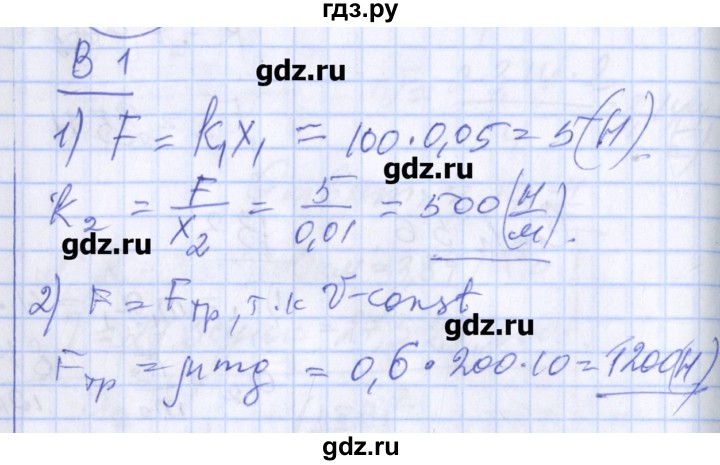 гдз.ру
В 1
gdz.ru
1) F = k₁x₁ = 100·0,05 = 5 (Н)
gdz.ru
k₂ = F/x₂ = 5/0,01 = 500 (Н/м).
gdz.ru
2) F = Fтр, т.к v-const
gdz.ru
Fтр = μmg = 0,6·200·10 = 1200 (Н)
gdz.ru